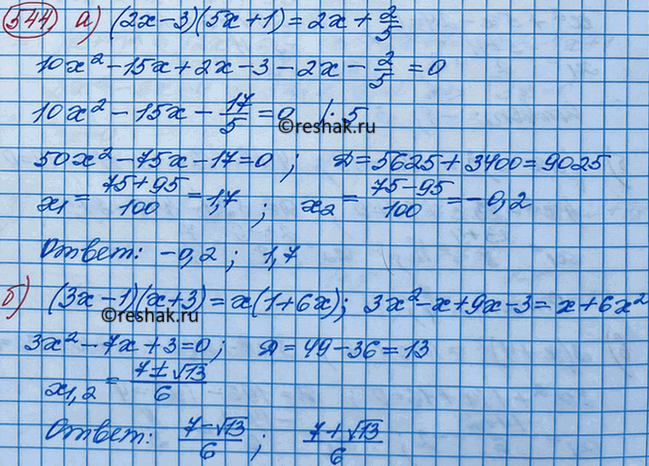 544 а) (2x-3)(5x+1)=2x+2/5
10x²-15x+2x-3-2x-2/5=0
10x²-15x-17/5=0 |·5
©reshak.ru
50x²-75x-17=0; D=5625+3400=9025
x₁=(75+95)/100=1,7; x₂=(75-95)/100=-0,2
Ответ: -0,2; 1,7
б) (3x-1)(x+3)=x(1+6x); 3x²-x+9x-3=x+6x²
©reshak.ru
3x²-7x+3=0; D=49-36=13
x₁,₂=(7±√13)/6
Ответ: (7-√13)/6; (7+√13)/6